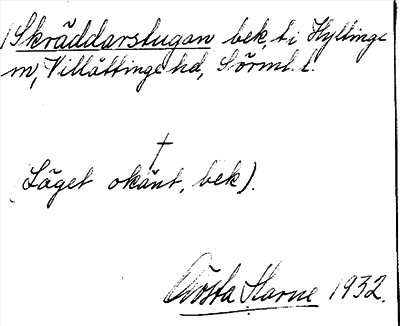 Skräddarstugan bek, t. i Hyltinge
sn, Villåttinge hd, Sörml. l.
†
(Läget okänt, bek).
Gösta Harne 1932.